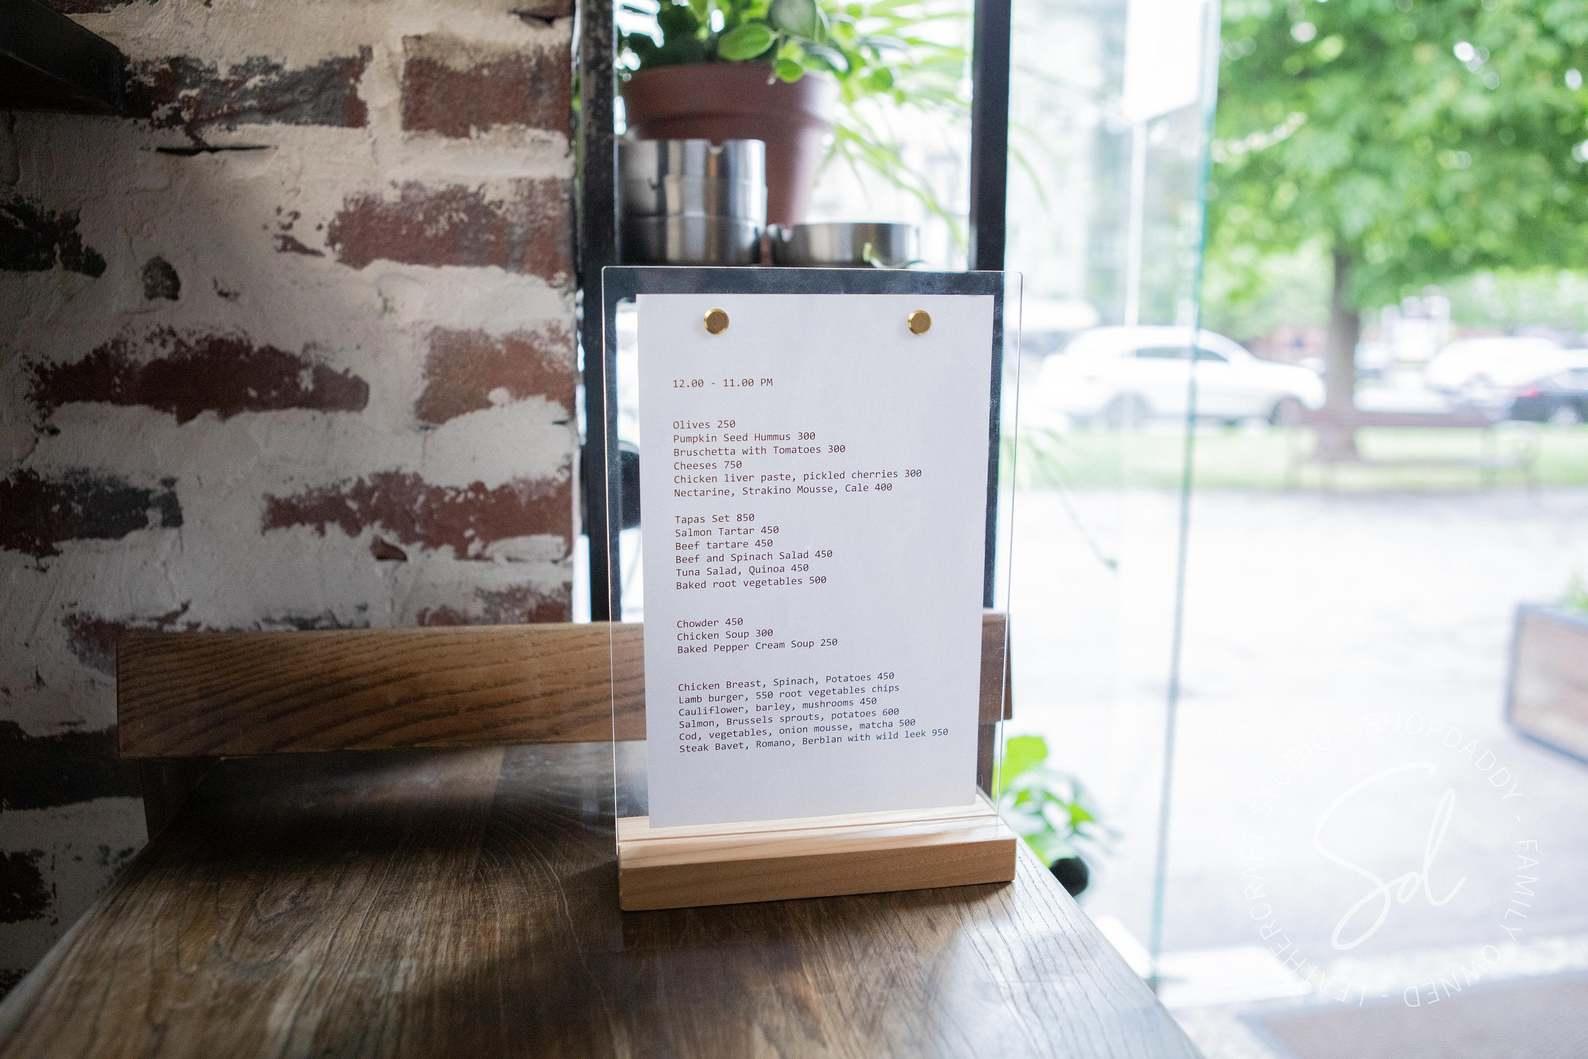 12.00 - 11.00 PM
Olives 250
Pumpkin Seed Hummus 300
Bruschetta with Tomatoes 300
Cheeses 750
Chicken liver paste, pickled cherries 300
Nectarine, Strakino Mousse, Cale 400
Tapas Set 850
Salmon Tartar 450
Beef tartare 450
Beef and Spinach Salad 450
Tuna Salad, Quinoa 450
Baked root vegetables 500
Chowder 450
Chicken Soup 300
Baked Pepper Cream Soup 250
Chicken Breast, Spinach, Potatoes 450
Lamb burger, 550 root vegetables chips
Cauliflower, barley, mushrooms 450
Salmon, Brussels sprouts, potatoes 600
Cod, vegetables, onion mousse, matcha 500
Steak Bavet, Romano, Berblan with wild leek 950
Sd
FAMILY OWNED